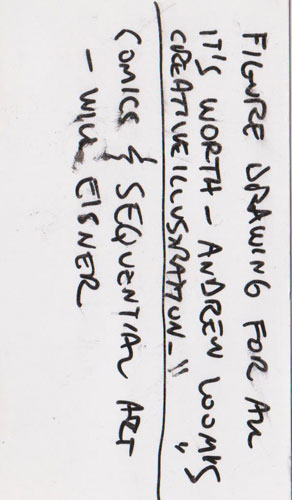 FIGURE DRAWING FOR ALL
IT'S WORTH - ANDREW LOOMIS
CREATIVE ILLUSTRATION - " "
COMICS & SEQUENTIAL ART
- WILL EISNER